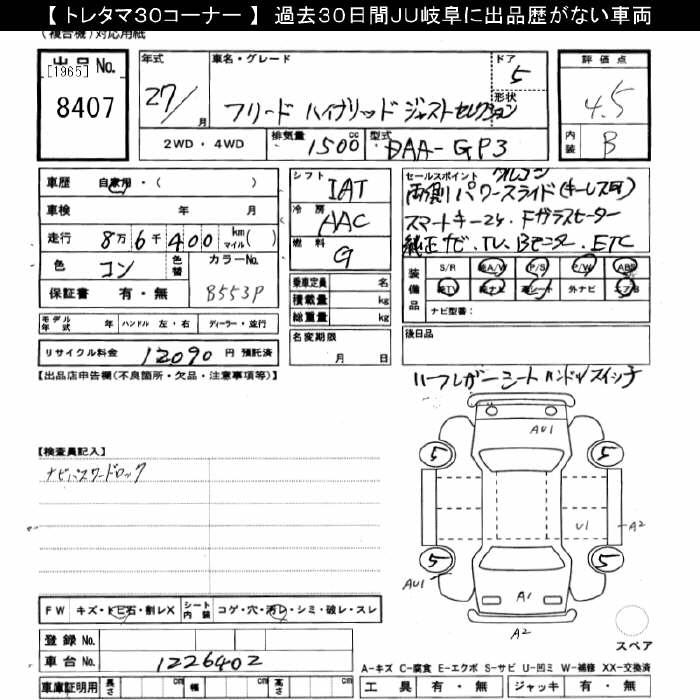 【 トレタマ30コーナー 】 過去30日間JU岐阜に出品歴がない車両
(複合機)対応用紙
出品No.
[1965]
8407
年式
27/ 月
車名・グレード
フリード ハイブリッド ジャストセレクション
ドア
5
形状
評価点
4.5
内装 B
2WD・4WD
排気量 1500 cc
型式 DAA-GP3
車歴 自家用・( )
車検 年 月
走行 8万6千400 km マイル( )
色 コン 色替
カラーNo.
B553P
保証書 有・無
シフト IAT
冷房 AAC
燃料 G
乗車定員 名
積載量 kg
総重量 kg
セールスポイント
両側パワースライド(キーレス可)
スマートキー2ケ・Fガラスヒーター
純正ナビ・TV・Bモニター・ETC
装備品
S/R A/W P/S P/W ABS
TV ナビ 革シート 外ナビ エアB
ナビ型番:
モデル年式 年 ハンドル 左・右 ディーラー・並行
リサイクル料金 12090 円 預託済
名変期限
月 日
後日品
【出品店申告欄(不良箇所・欠品・注意事項等)】
ハーフレザーシート ハンドルスイッチ
【検査員記入】
ナビパスワードロック
AU1
5
5
U1
A2
5
5
AU1
A1
A2
スペア
FW キズ・トビ石・割レX シート内装 コゲ・穴・汚レ・シミ・破レ・スレ
登録No.
車台No. 1226402
A-キズ C-腐食 E-エクボ S-サビ U-凹ミ W-補修 XX-交換済
車庫証明用 長さ cm 幅 cm 高さ cm
工具 有・無 ジャッキ 有・無